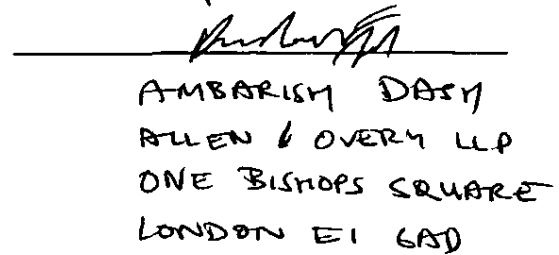 AMBARISH DASH
ALLEN & OVERY LLP
ONE BISHOPS SQUARE
LONDON E1 6AD